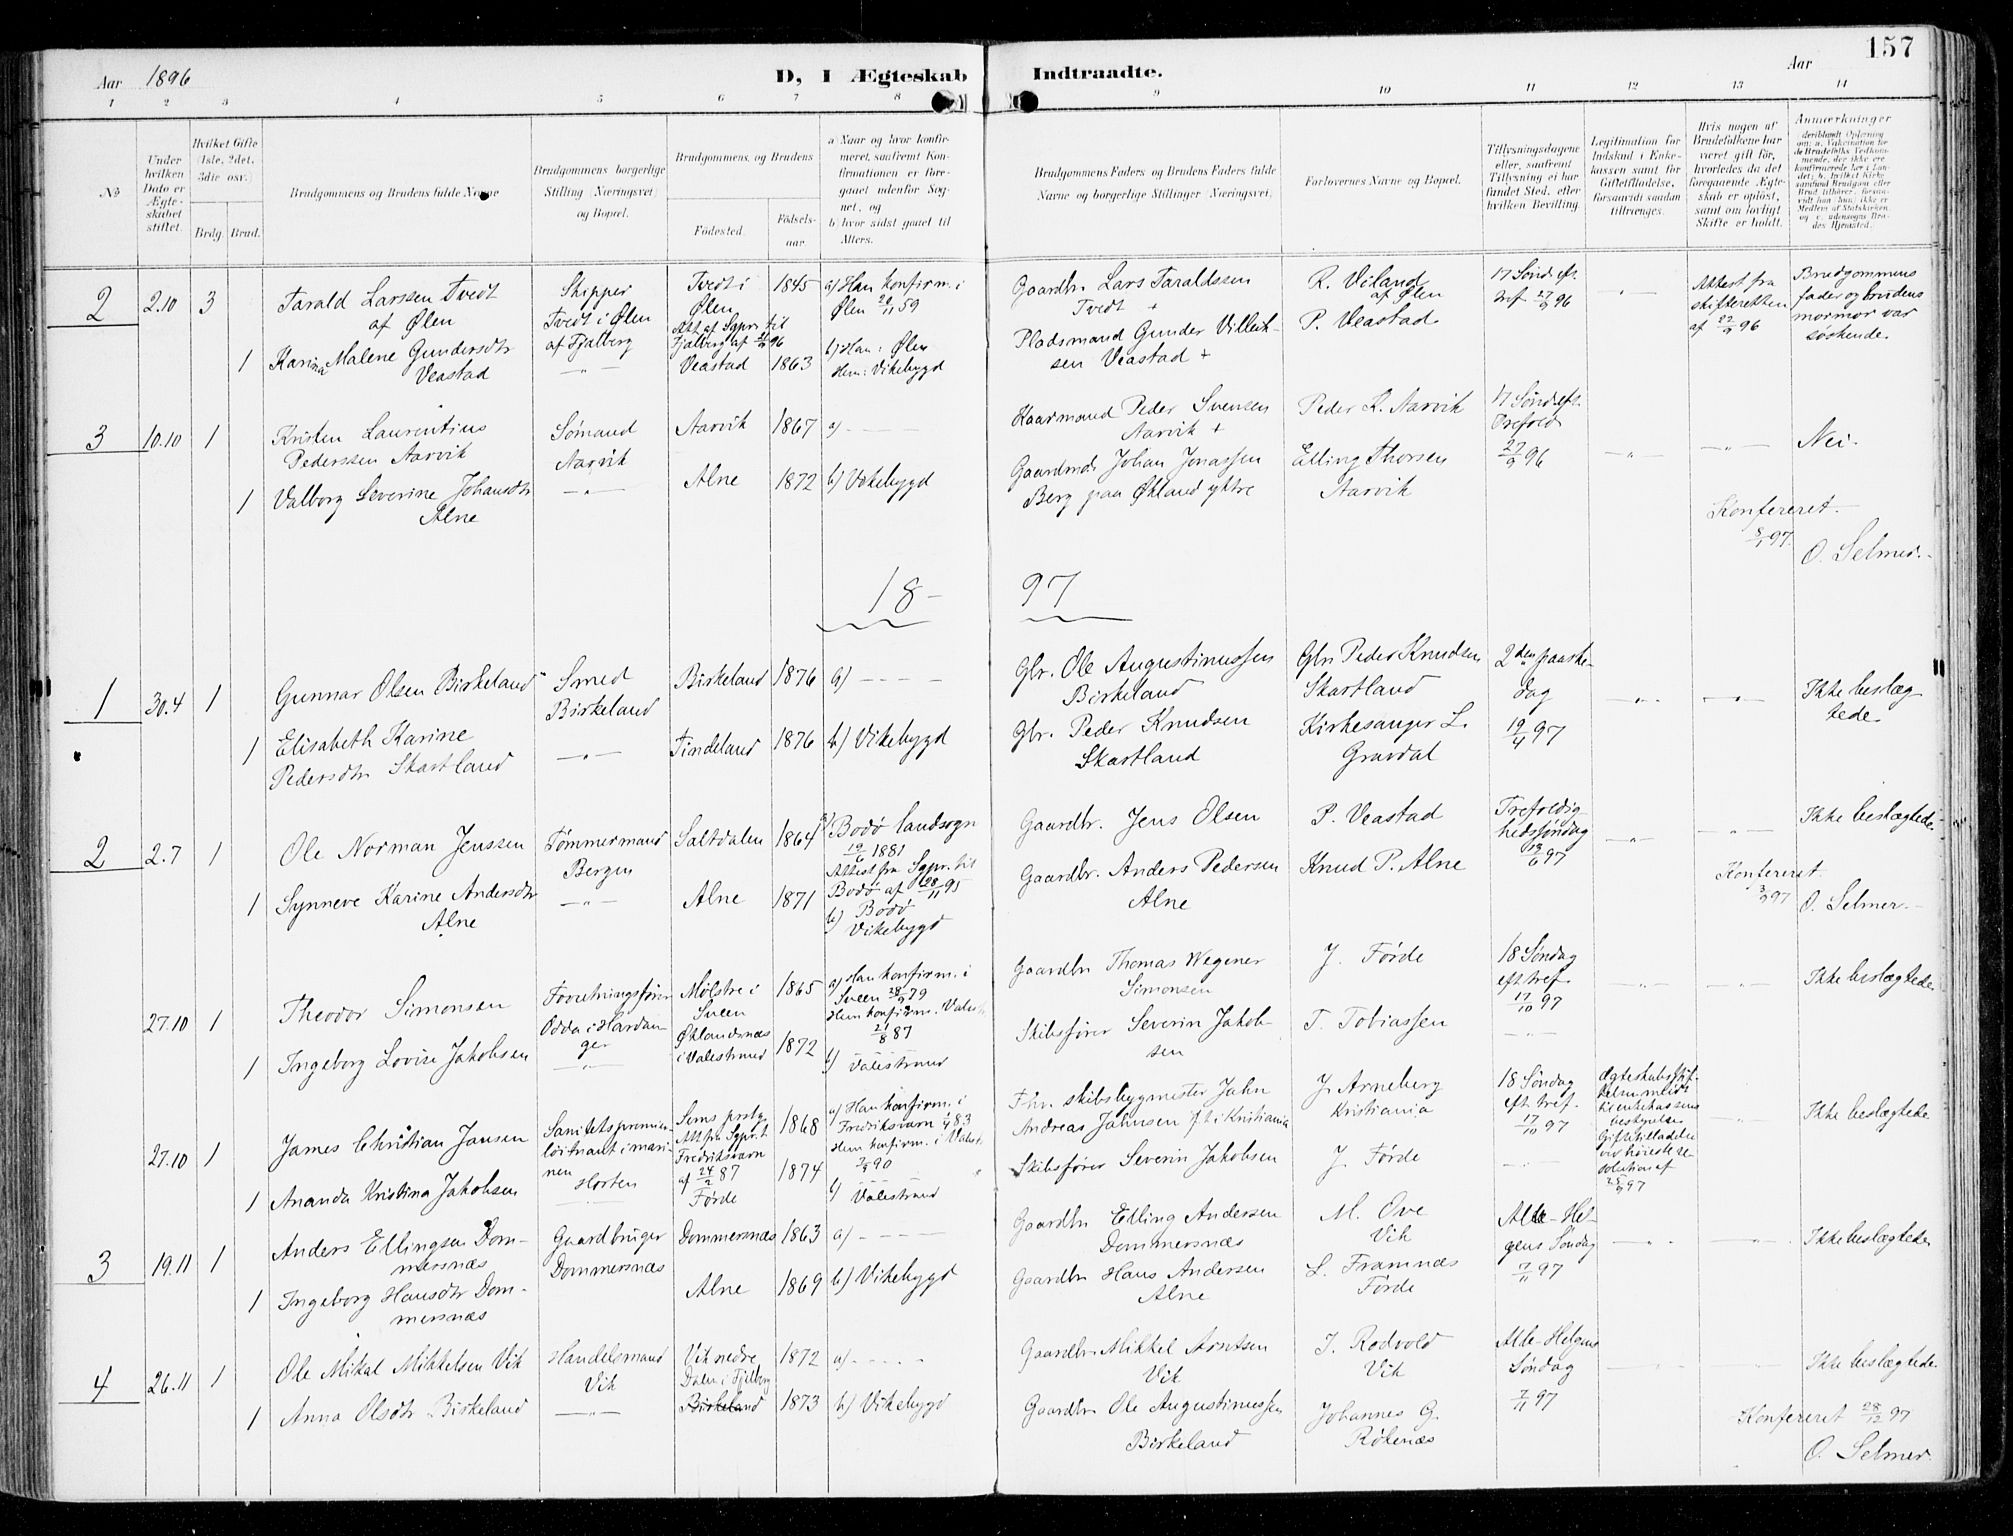 Aar 1896
D, I Ægteskab Indtraadte.
Aar
157
1 2 3 4 5 6 7 8 9 10 11 12 13 14
No
Under hvilken Dato er Ægteskabet stiftet.
Hvilket Gifte (1ste, 2det, 3die osv.)
Brdg. Brud.
Brudgommens og Brudens fulde Navne
Brudgommens borgerlige Stilling (Næringsvei) og Bopæl.
Brudgommens og Brudens
Fødested.
Fødselsaar.
a) Naar og hvor konfirmeret, saafremt Konfirmationen er foregaaet udenfor Sognet, og
b) hvor sidst gaaet til Alters.
Brudgommens Faders og Brudens Faders fulde Navne og borgerlige Stillinger (Næringsvei).
Forlovernes Navne og Bopæl.
Tillysningsdagene eller, saafremt Tillysning ei har fundet Sted, efter hvilken Bevilling.
Legitimation for Indskud i Enkekassen samt for Giftetilladelse, forsaavidt saadan tiltrænges.
Hvis nogen af Brudefolkene har været gift før, hvorledes da det foregaaende Ægteskab er opløst, samt om lovligt Skifte er holdt.
Anmærkninger
2 2.10 3 Tarald Larssen Tvedt
af Ølen
Skipper
Tvedt i Ølen
af Fjalberg
Tvedt i
Ølen
Att. af Sgpr. til
Fjalberg af 96
1845
a) Han konfirm. i
Ølen 20/11 59
Gaardbr. Lars Taraldssen
Tvedt +
R. Viland
af Ølen
17 Sønd. eft.
tref. 27/9 96
- " -
Attest fra
skifteretten
af 22/9 96
Brudgommens
fader og brudens
mormor var
søskende.
1 Karina Malene Gundersdtr
Veastad
- " -
Veastad 1863
b) Han: Ølen
Hun: Vikebygd
Pladsmand Gunder Villiamsen
Veastad +
P. Veastad
3 10.10 1 Kristen Laurentius
Pederssen Aarvik
Sømand
Aarvik
Aarvik 1867 a) - - -
Kaarmand Peder Svensen
Aarvik +
Peder R. Aarvik
17 Sønd. eft.
Trefold
27/9 96
- " - - " - Nei.
1 Valborg Severine Johansdtr
Alne
- " -
Alne 1872 b) Vikebygd
Gaardmd. Johan Jonassen
Berg paa Økland yttre
Elling Thorsen
Aarvik
Konfereret.
8/1 97.
O. Selmer.
18- 97
1 30.4 1 Gunnar Olsen Birkeland
Smed
Birkeland
Birkeland 1876 a) - - - -
Gbr. Ole Augustinussen
Birkeland
Gbr. Peder Knudsen
Skartland
2den paaskedag
19/4 97
- " - - " -
Ikke beslægtede.
1 Elisabeth Karine
Pedersdtr Skartland
- " -
Tindeland 1876 b) Vikebygd
Gbr. Peder Knudsen
Skartland
Kirkesanger L.
Gravdal
2 2.7 1 Ole Norman Jenssen
Tømmermand
Bergen
Saltdalen 1864
a) Bodø landsogn
19/6 1881
Attest fra Sgpr. til
Bodø af 28/11 95
Gaardbr. Jens Olsen
P. Veastad
Trefoldighedssøndag
13/6 97
- " - - " -
Ikke beslægtede.
1 Synneve Karine Andersdtr
Alne
- " -
Alne 1871
b) Bodø
Vikebygd
Gaardbr. Anders Pedersen
Alne
Knud P. Alne
Konfereret.
3/9 97
O. Selmer.
27.10 1 Theodor Simonsen
Forretningsfører
Odda i Hardanger
Mølstre i
Sveen
1865
a) Han konfirm. i
Sveen 28/9 79
Hun konfirm. Valestr.
21/8 87
Gaardbr Thomas Wegener
Simonsen
J. Førde
18 Søndag
eft. tref.
17/10 97
- " - - " -
Ikke beslægtede.
1 Ingeborg Lovise Jakobsen
- " -
Øklandsnæs
i Valestrand
1872
b) Valestrand
Skibsfører Severin Jakobsen
T. Tobiassen
- " -
27.10 1 James Christian Jansen
Sanitetspremierløitnant i marinen
Horten
Sems prstg.
Att fra Sgpr. t.
Fredriksværn
af 24/2 87
1868
a) Han konfirm. i
Fredriksværn 1/4 83
Hun konfirm. i Valestr.
90
Fhv. skibsbygmester Jahn
Andreas Jahnsen f.t. i Kristiania
J. Arneberg
Kristiania
18 Søndag
eft. tref.
17/10 97
Giftetilladelse
ved høieste resolution af
25/9 97
- " -
Ikke beslægtede
1 Ananda Kristina Jakobsen
Førde 1874
b) Valestrand
Skibsfører Severin Jakobsen
J. Førde
- " -
3 19.11 1 Anders Ellingsen Dommersnæs
Gaardbruger
Dommersnæs
Dommersnæs 1863 a) - - - -
Gaardbr Elling Andersen
Dommersnæs
M. Ove
Vik
Alle-Helgens Søndag
7/11 97
- " - - " -
Ikke beslægtede
1 Ingeborg Hansdtr Dommersnæs
Alne 1869 b) Vikebygd
Gaardbr Hans Andersen
Alne
L. Framnæs
Førde
4 26.11 1 Ole Mikal Mikkelsen Vik
Handelsmand
Vik
Vik nedre 1872 a) - - - -
Gaardbr. Mikkel Arntsen
Vik
J. Rodvold
Vik
Alle-Helgens
Søndag
7/11 97
- " - - " -
Ikke beslægtede.
1 Anna Olsdtr Birkeland
- " -
Dalen i Fjelberg
Birkeland 1873 b) Vikebygd
Gaardbr. Ole Augustinussen
Birkeland
Johannes G.
Røkenæs
Konfereret 28/12 97
O. Selmer.